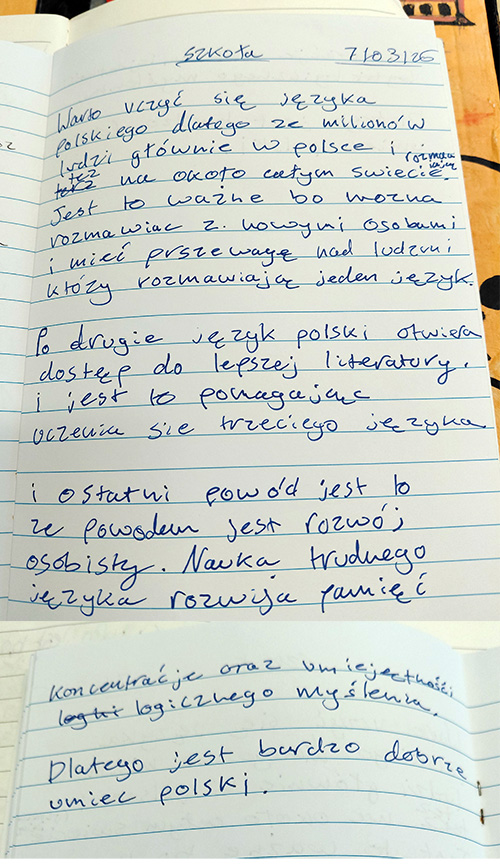 szkoła 7/03/26
Warto uczyć się języka
polskiego dlatego ze milionów
ludzi głównie w polsce i rozmawiają
też na około całym swiecie.
Jest to ważne bo można
rozmawiac z nowymi osobami
i mieć przewagę nad ludzmi
którzy rozmawiają jeden język.
Po drugie język polski otwiera
dostęp do lepszej literatury.
i jest to pomagając
uczenia sie trzeciego języka
i ostatni powód jest to
ze powodem jest rozwój
osobisty. Nauka trudnego
języka rozwija pamięć
Koncentracje oraz umiejętności
logicznego myślenia.
Dlatego jest bardzo dobrze
umiec polski.